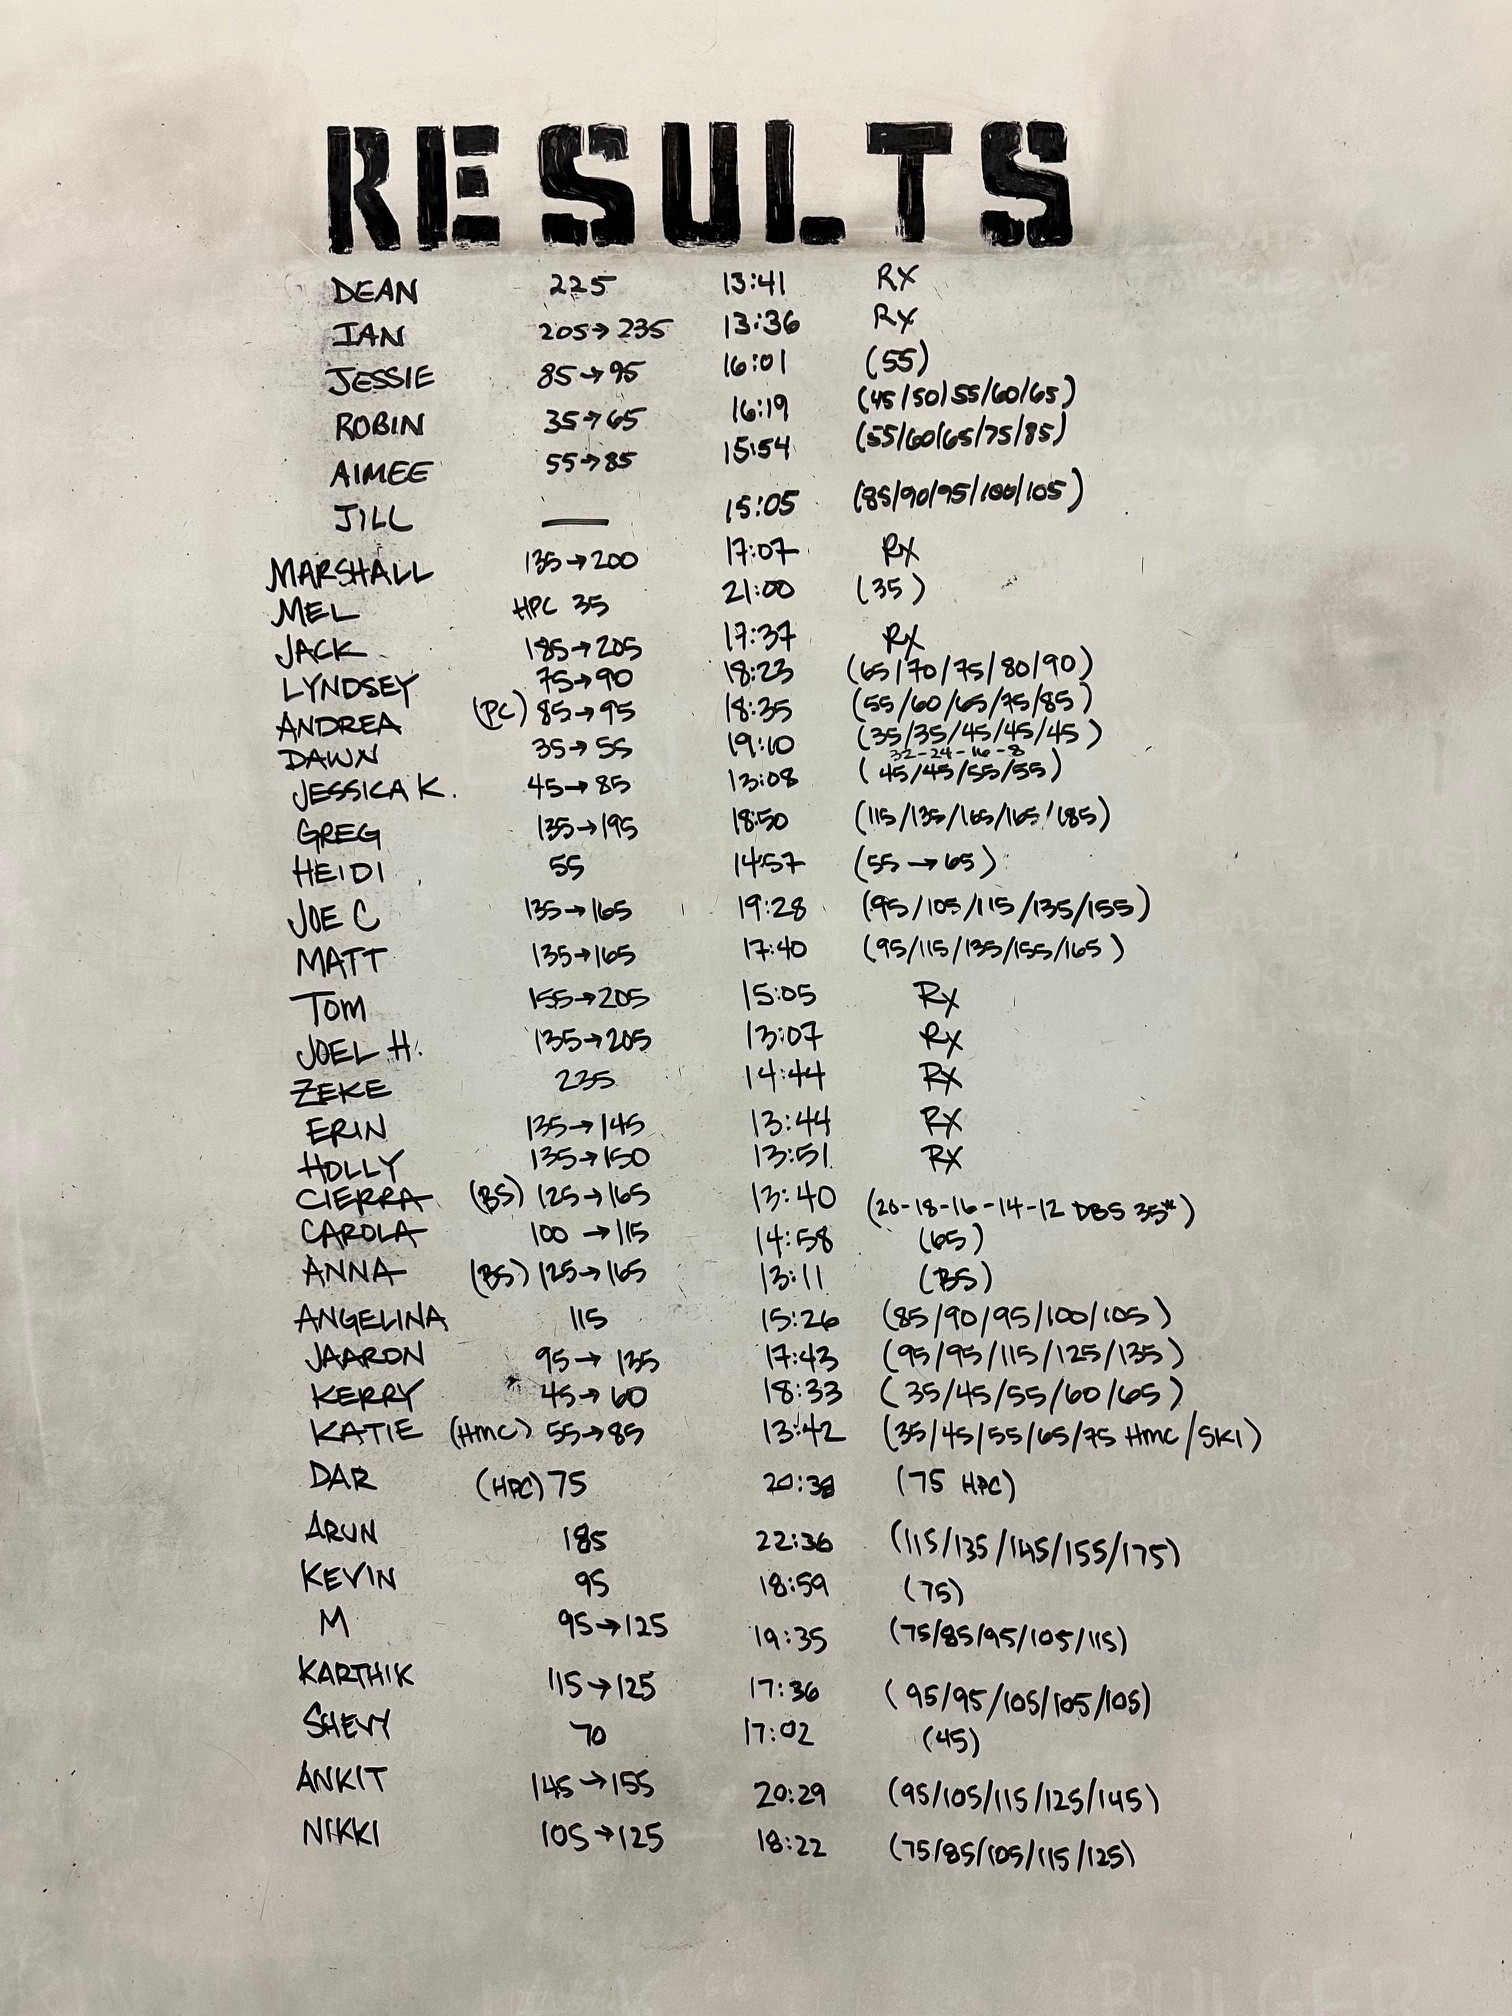 RESULTS
DEAN 225 13:41 RX
IAN 205→235 13:36 RX
JESSIE 85→95 16:01 (55)
ROBIN 35→65 16:19 (45/50/55/60/65)
AIMEE 55→85 15:54 (55/60/65/75/85)
JILL — 15:05 (85/90/95/100/105)
MARSHALL 135→200 17:07 RX
MEL HPC 35 21:00 (35)
JACK 185→205 17:37 RX
LYNDSEY 75→90 18:23 (65/70/75/80/90)
ANDREA (PC) 85→95 18:35 (55/60/65/75/85)
DAWN 35→55 19:10 (35/35/45/45/45)
32-24-16-8
JESSICA K. 45→85 13:08 (45/45/55/55)
GREG 135→195 18:50 (115/135/165/165/185)
HEIDI 55 14:57 (55→65)
JOE C 135→165 19:28 (95/105/115/135/155)
MATT 135→165 17:40 (95/115/135/155/165)
TOM 155→205 15:05 RX
JOEL H. 135→205 13:07 RX
ZEKE 235 14:44 RX
ERIN 135→145 13:44 RX
HOLLY 135→150 13:51 RX
CIERRA (BS) 125→165 13:40 (20-18-16-14-12 DBS 35#)
CAROLA 100→115 14:58 (65)
ANNA (BS) 125→165 13:11 (BS)
ANGELINA 115 15:26 (85/90/95/100/105)
JAARON 95→135 17:43 (95/95/115/125/135)
KERRY 45→60 18:33 (35/45/55/60/65)
KATIE (HMC) 55→85 13:42 (35/45/55/65/75 HMC/SKI)
DAR (HPC) 75 20:38 (75 HPC)
ARUN 185 22:36 (115/135/145/155/175)
KEVIN 95 18:59 (75)
M 95→125 19:35 (75/85/95/105/115)
KARTHIK 115→125 17:36 (95/95/105/105/105)
SHEVY 70 17:02 (45)
ANKIT 145→155 20:29 (95/105/115/125/145)
NIKKI 105→125 18:22 (75/85/105/115/125)